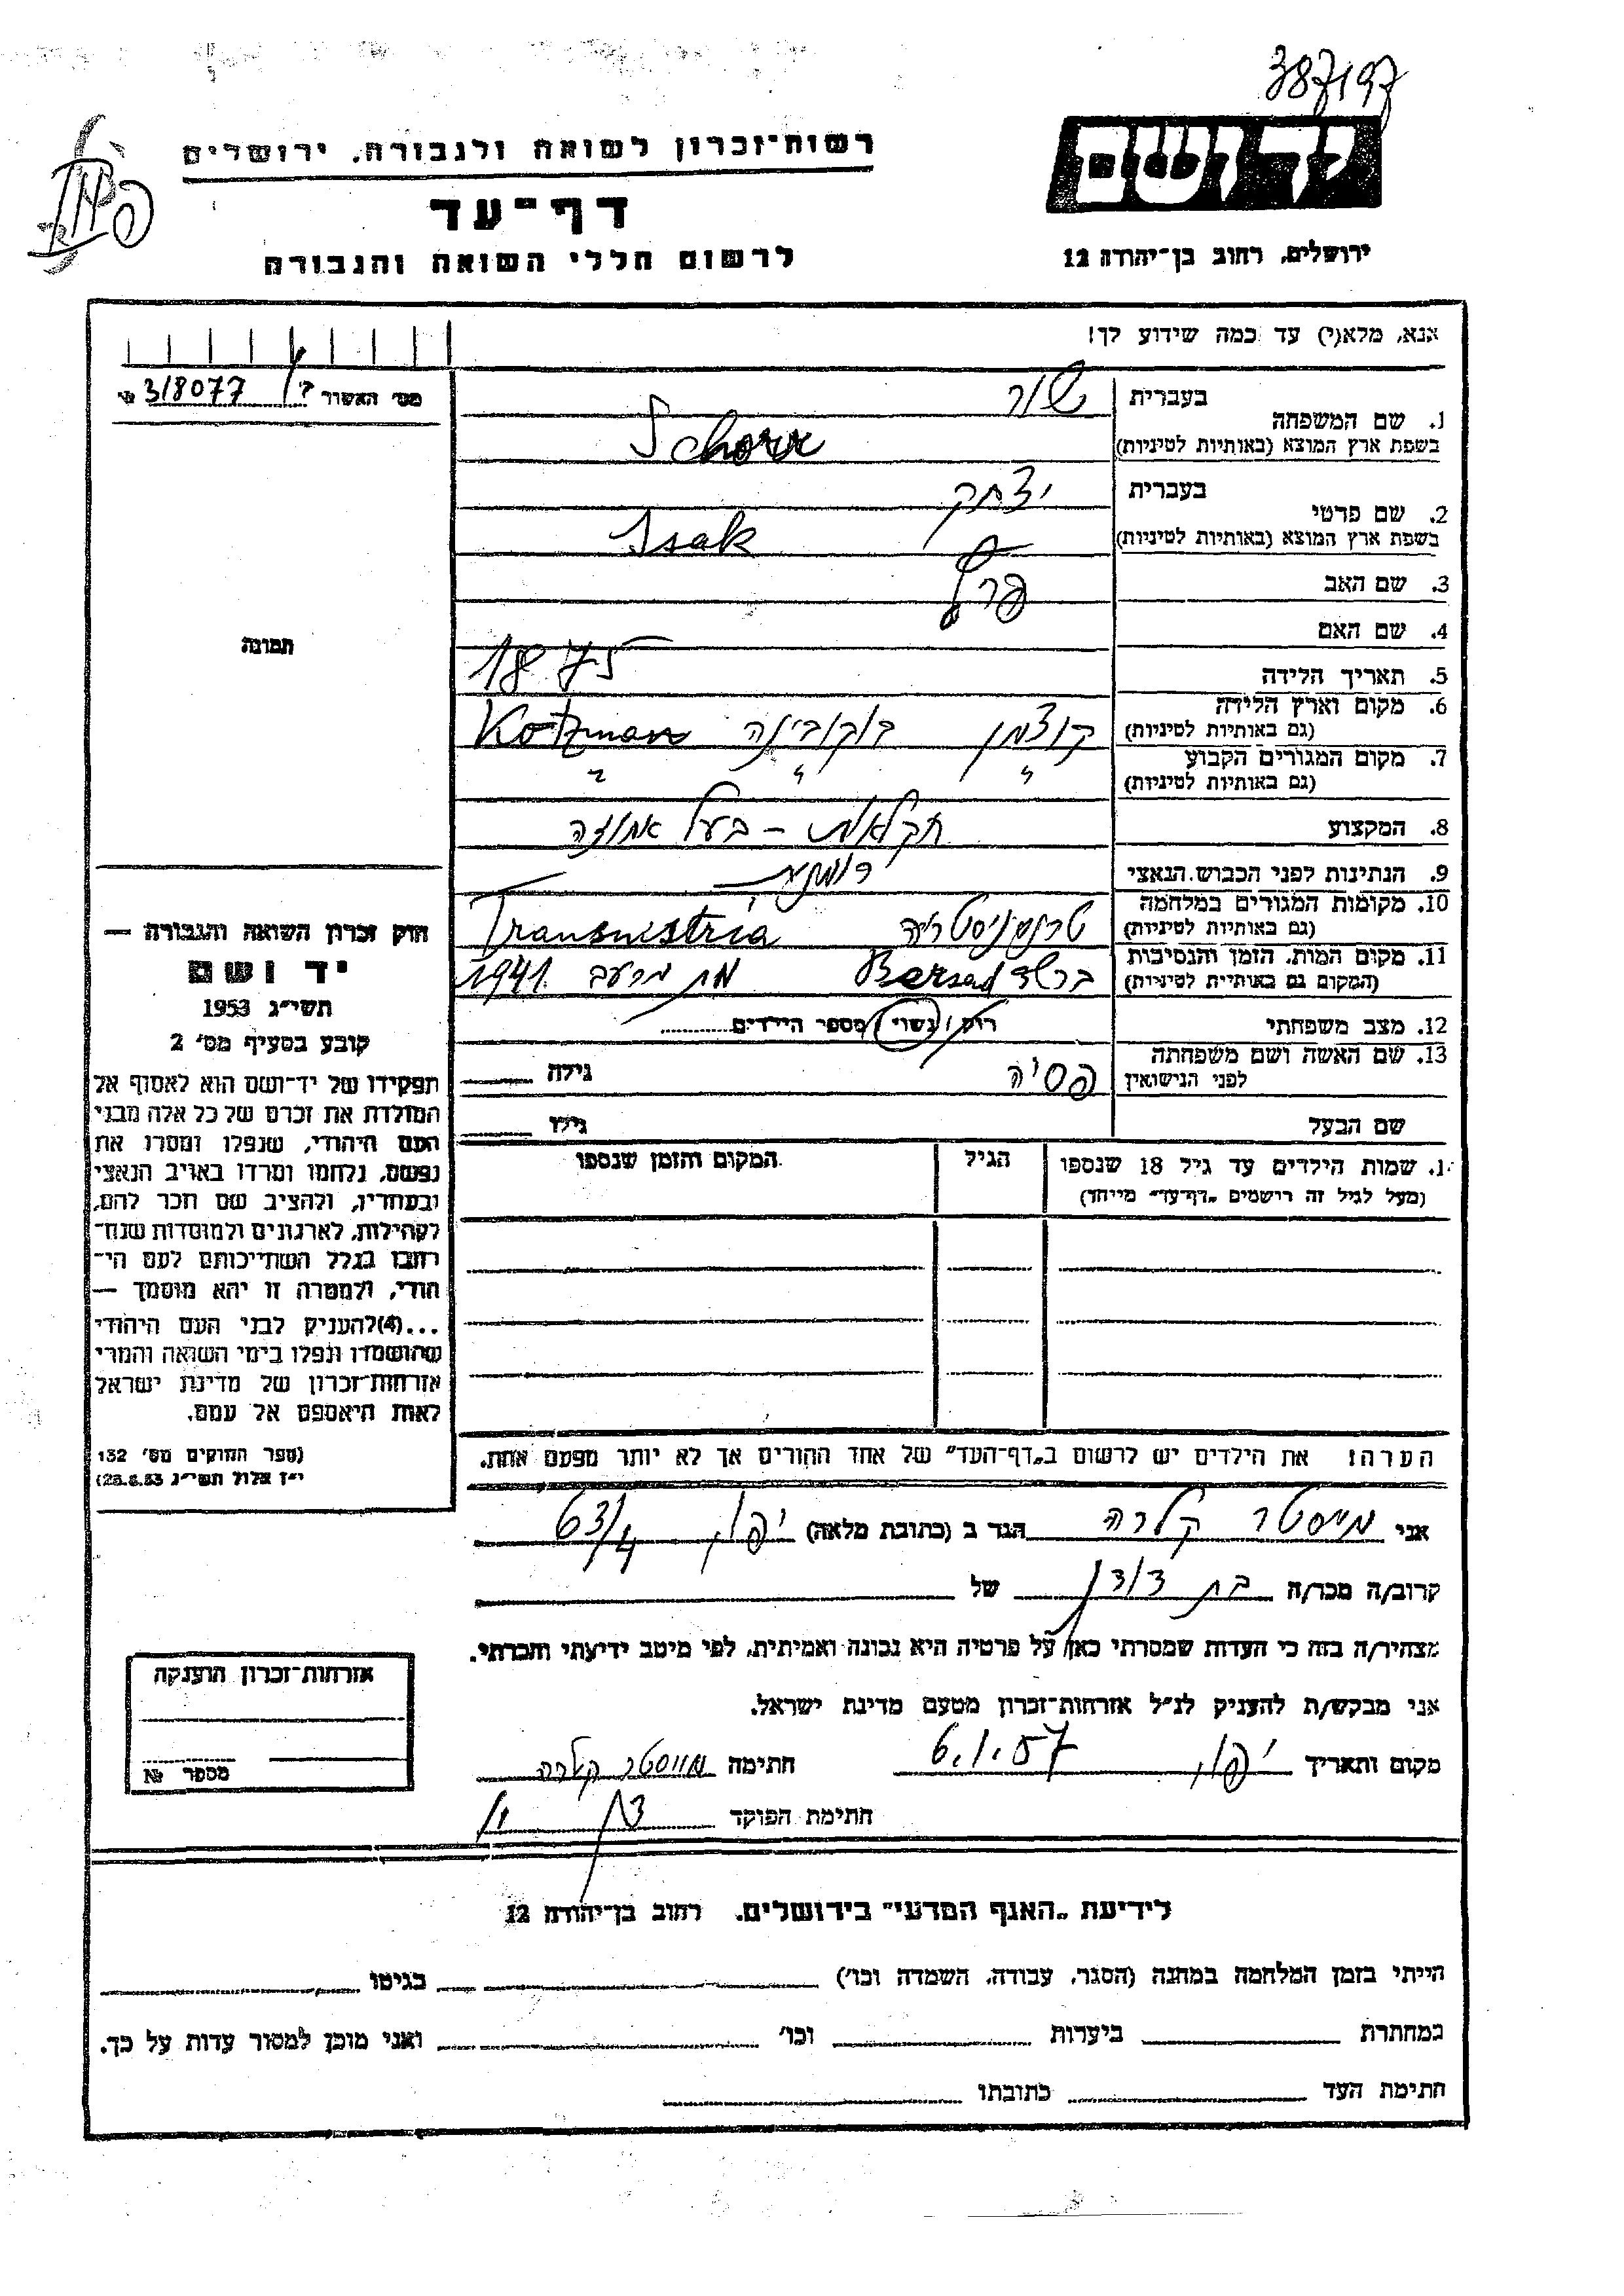 387197
יד ושם
ירושלים, רחוב בן־יהודה 12
רשות־זכרון לשואה ולגבורה, ירושלים
דף־עד
לרשום חללי השואה והגבורה
אנא, מלא(י) עד כמה שידוע לך!
מס׳ האשור 318077 №
1. שם המשפחה בעברית שור
בשפת ארץ המוצא (באותיות לטיניות) Schorr
2. שם פרטי בעברית יצחק
בשפת ארץ המוצא (באותיות לטיניות) Isak
3. שם האב פרץ
4. שם האם
5. תאריך הלידה 1875
6. מקום וארץ הלידה (גם באותיות לטיניות) קוצמן בוקובינה Kotzman
7. מקום המגורים הקבוע (גם באותיות לטיניות) " " "
8. המקצוע חקלאות – בעל אחוזה
9. הנתינות לפני הכבוש הנאצי רומנית
10. מקומות המגורים במלחמה (גם באותיות לטיניות) טרנסניסטריה Transnistria
11. מקום המות, הזמן והנסיבות (המקום גם באותיות לטיניות) ברשד Bersad מת מרעב 1941
12. מצב משפחתי רווק / נשוי / מספר הילדים
13. שם האשה ושם משפחתה לפני הנישואין פסיה גילה
שם הבעל גילו
1. שמות הילדים עד גיל 18 שנספו הגיל המקום והזמן שנספו
(מעל לגיל זה רושמים „דף־עד״ מיוחד)
הערה! את הילדים יש לרשום ב„דף־העד״ של אחד ההורים אך לא יותר מפעם אחת.
תמונה
חוק זכרון השואה והגבורה —
יד ושם
תשי״ג 1953
קובע בסעיף מס׳ 2
תפקידו של יד־ושם הוא לאסוף אל
המולדת את זכרם של כל אלה מבני
העם היהודי, שנפלו ומסרו את
נפשם, נלחמו ומרדו באויב הנאצי
ובעוזריו, ולהציב שם וזכר להם,
לקהילות, לארגונים ולמוסדות שנח־
רבו בגלל השתייכותם לעם הי־
הודי, ולמטרה זו יהא מוסמך —
...(4)להעניק לבני העם היהודי
שהושמדו ונפלו בימי השואה והמרי
אזרחות־זכרון של מדינת ישראל
לאות היאספם אל עמם.
(ספר החוקים מס׳ 132
י״ז אלול תשי״ג 28.8.53)
אני מייסטר קלרה הגר ב (כתובת מלאה) יפו, 63/4
קרוב/ה מכר/ה בת דוד של
מצהיר/ה בזה כי העדות שמסרתי כאן על פרטיה היא נכונה ואמיתית, לפי מיטב ידיעתי והכרתי.
אני מבקש/ת להעניק לנ״ל אזרחות־זכרון מטעם מדינת ישראל.
מקום ותאריך יפו, 6.1.57 חתימה מייסטר קלרה
חתימת הפוקד
אזרחות־זכרון הוענקה
מספר №
לידיעת „האגף המדעי״ בירושלים, רחוב בן־יהודה 12
הייתי בזמן המלחמה במחנה (הסגר, עבודה, השמדה וכו׳) בגיטו
במחתרת ביערות וכו׳ ואני מוכן למסור עדות על כך.
חתימת העד כתובתו